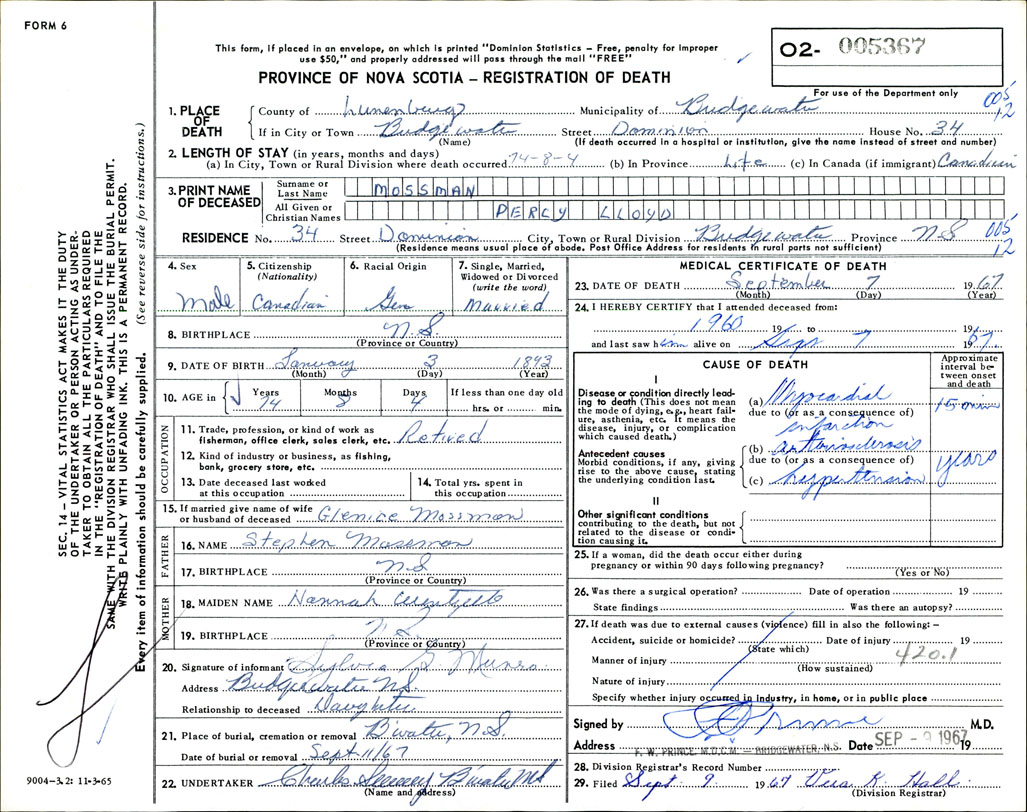 FORM 6
This form, if placed in an envelope, on which is printed "Dominion Statistics – Free, penalty for improper
use $50," and properly addressed will pass through the mail "FREE"
PROVINCE OF NOVA SCOTIA – REGISTRATION OF DEATH
O2- 005367
For use of the Department only
005
12
1. PLACE OF DEATH
County of Lunenburg Municipality of Bridgewater
If in City or Town Bridgewater Street Dominion House No. 34
(Name) (If death occurred in a hospital or institution, give the name instead of street and number)
2. LENGTH OF STAY (in years, months and days)
(a) In City, Town or Rural Division where death occurred 74-8-4 (b) In Province Life (c) In Canada (if immigrant) Canadian
3. PRINT NAME OF DECEASED
Surname or Last Name MOSSMAN
All Given or Christian Names PERCY LLOYD
RESIDENCE No. 34 Street Dominion City, Town or Rural Division Bridgewater Province N.S
005
12
(Residence means usual place of abode. Post Office Address for residents in rural parts not sufficient)
4. Sex Male
5. Citizenship (Nationality) Canadian
6. Racial Origin Ger
7. Single, Married, Widowed or Divorced (write the word) Married
8. BIRTHPLACE N.S.
(Province or Country)
9. DATE OF BIRTH January 3 1893
(Month) (Day) (Year)
10. AGE in Years 74 Months 8 Days 4 If less than one day old
hrs. or min.
OCCUPATION
11. Trade, profession or kind of work as
fisherman, office clerk, sales clerk, etc. Retired
12. Kind of industry or business, as fishing,
bank, grocery store, etc.
13. Date deceased last worked
at this occupation
14. Total yrs. spent in
this occupation
15. If married give name of wife
or husband of deceased Glenice Mossman
FATHER
16. NAME Stephen Mossman
17. BIRTHPLACE N.S
(Province or Country)
MOTHER
18. MAIDEN NAME Hannah
19. BIRTHPLACE N.S.
(Province or Country)
20. Signature of informant Sylvia G.
Address Bridgewater N.S.
Relationship to deceased Daughter
21. Place of burial, cremation or removal B'water, N.S.
Date of burial or removal Sept 11/67
22. UNDERTAKER Charles
(Name and address)
MEDICAL CERTIFICATE OF DEATH
23. DATE OF DEATH September 7 1967
(Month) (Day) (Year)
24. I HEREBY CERTIFY that I attended deceased from:
1960 19 to 19
and last saw him alive on Sept 7 1967.
CAUSE OF DEATH
Approximate interval between onset and death
I
Disease or condition directly leading to death (This does not mean
the mode of dying, e.g., heart failure, asthenia, etc. It means the
disease, injury, or complication
which caused death.)
(a) Myocardial
due to (or as a consequence of)
infarction
15 mins
Antecedent causes
Morbid conditions, if any, giving
rise to the above cause, stating
the underlying condition last.
(b) arteriosclerosis
due to (or as a consequence of)
(c) hypertension
years
II
Other significant conditions
contributing to the death, but not
related to the disease or condition causing it.
25. If a woman, did the death occur either during
pregnancy or within 90 days following pregnancy?
(Yes or No)
26. Was there a surgical operation? Date of operation 19
State findings Was there an autopsy?
27. If death was due to external causes (violence) fill in also the following: –
Accident, suicide or homicide? Date of injury 19
(State which)
420.1
Manner of injury
(How sustained)
Nature of injury
Specify whether injury occurred in Industry, in home, or in public place
Signed by M.D.
Address F. W. PRINCE M.D.C.M. – BRIDGEWATER, N.S. Date SEP - 9 1967 19
28. Division Registrar's Record Number
29. Filed Sept. 9 1967 Vera K. Hall
(Division Registrar)
SEC. 14 – VITAL STATISTICS ACT MAKES IT THE DUTY
OF THE UNDERTAKER OR PERSON ACTING AS UNDERTAKER TO OBTAIN ALL THE PARTICULARS REQUIRED
IN THE "REGISTRATION OF DEATH" AND TO FILE THE
SAME WITH THE DIVISION REGISTRAR WHO SHALL ISSUE THE BURIAL PERMIT.
WRITE PLAINLY WITH UNFADING INK. THIS IS A PERMANENT RECORD.
Every item of information should be carefully supplied. (See reverse side for instructions.)
9004-3.2: 11-3-65